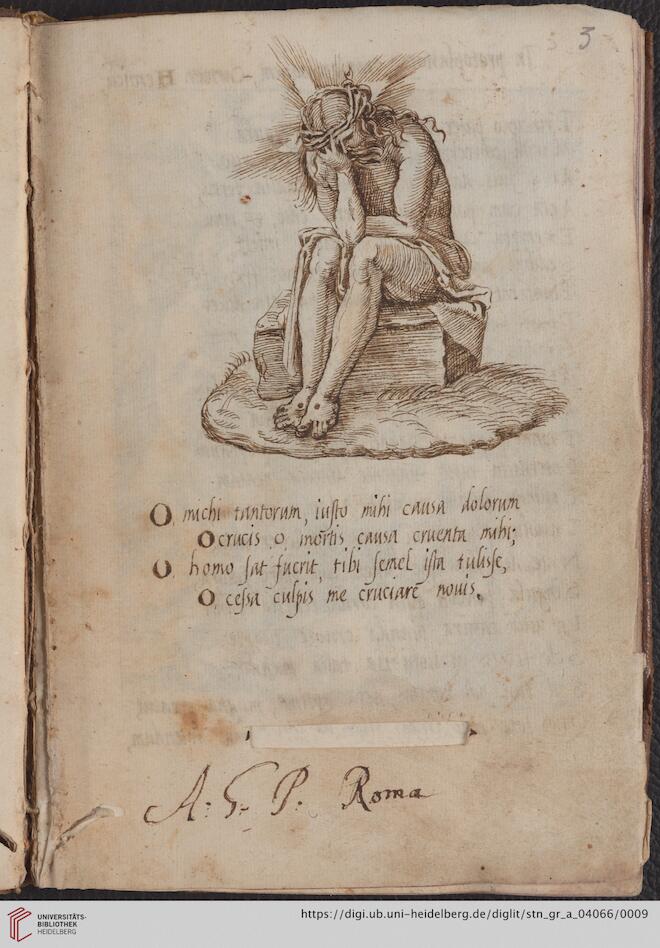 3
O michi tantorum, iusto mihi causa dolorum
O crucis o mortis causa cruenta mihi;
O homo sat fuerit, tibi semel ista tulisse,
O cessa culpis me cruciare novis.
A: G: P. Roma
UNIVERSITÄTS-
BIBLIOTHEK
HEIDELBERG
https://digi.ub.uni-heidelberg.de/diglit/stn_gr_a_04066/0009